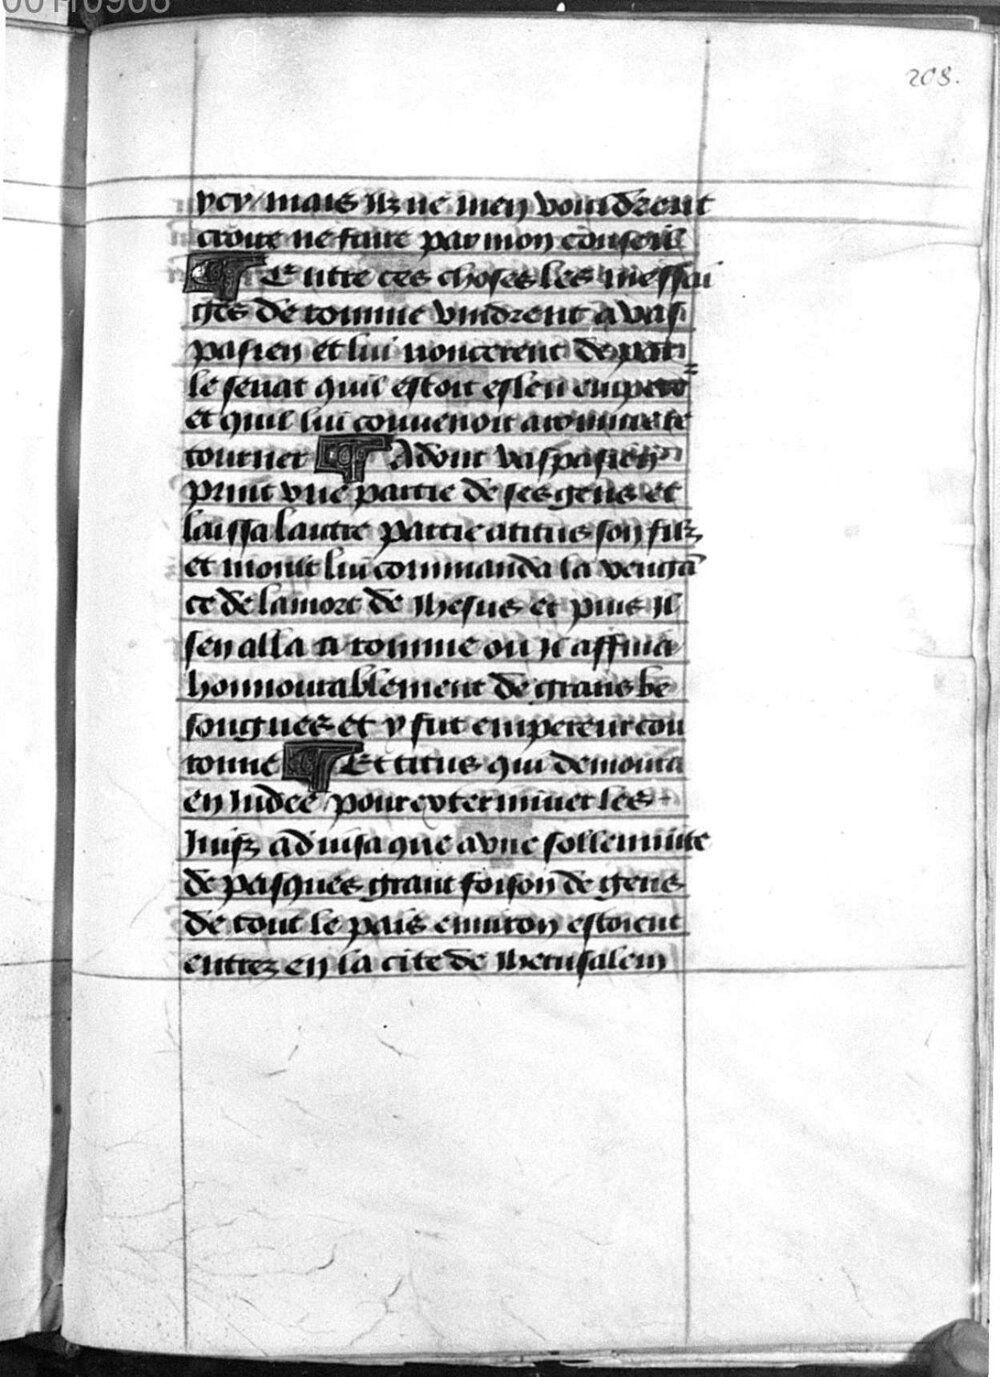 208.
ycy mais ilz ne men vouldrent
croire ne faire par mon conseil
¶ Entre ces choses les messai
ges de romme vindrent a vas
pasien et lui noncerent de par
le senat quil estoit esleu empere
et quil lui convenoit a romme re
tourner ¶ Adont vaspasien
print vne partie de ses gens et
laissa lautre partie a titus son filz
et moult lui commanda la vengā
ce de la mort de Jhesus et puis Il
sen alla a romme ou Il affina
honnourablement de grans be
songnes et y fut empereur cou
ronne ¶ Et titus qui demoura
en Iudee pour exterminer les
Iuifz aduisa que a vne sollempnite
de pasques grant foison de gens
de tout le pais enuiron estoient
entrez en la cite de Jherusalem